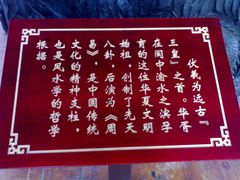 伏羲为远古『
三皇』之首。华胥
在阆中渝水之滨孕
育的这位华夏文明
始祖，创制了先天
八卦，后演为《周
易》，是中國传统
文化的精神支柱，
也是风水学的哲学
根据。